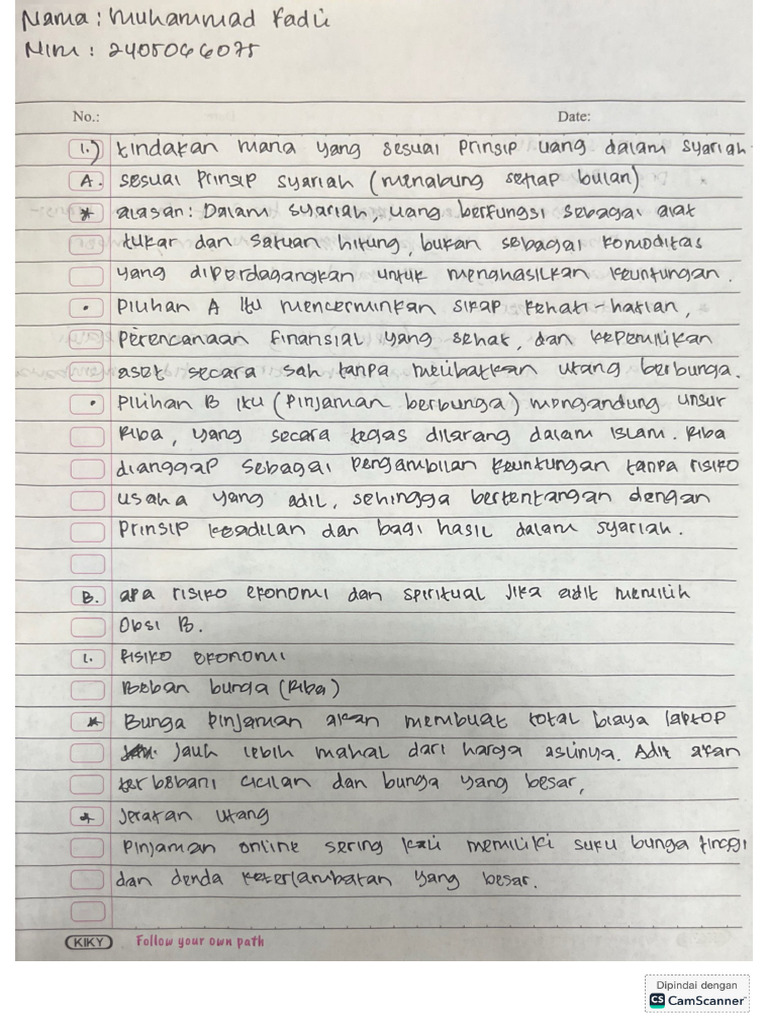 Nama : Muhammad Fadli
Nim : 2405066075
No.:
Date:
1.) tindakan mana yang sesuai prinsip uang dalam syariah
A. sesuai prinsip syariah (menabung setiap bulan)
* alasan: Dalam syariah, uang berfungsi sebagai alat
tukar dan satuan hitung, bukan sebagai komoditas
yang diperdagangkan untuk menghasilkan keuntungan.
• Piluhan A itu mencerminkan sikap kehati-hatian,
perencanaan finansial yang sehat, dan kepemilikan
aset secara sah tanpa melibatkan utang berbunga.
• Pilihan B itu (pinjaman berbunga) mengandung unsur
Riba, yang secara tegas dilarang dalam islam. Riba
dianggap sebagai pengambilan keuntungan tanpa risiko
usaha yang adil, sehingga bertentangan dengan
Prinsip keadilan dan bagi hasil dalam syariah.
B. apa risiko ekonomi dan spiritual jika adit memilih
Obsi B.
1. Risiko ekonomi
Beban bunga (Riba)
* Bunga pinjaman akan membuat total biaya laptop
jauh lebih mahal dari harga aslinya. Adit akan
terbebani cicilan dan bunga yang besar,
* Jeratan utang
Pinjaman online sering kali memiliki suku bunga tinggi
dan denda keterlambatan yang besar.
KIKY Follow your own path
Dipindai dengan
CS CamScanner